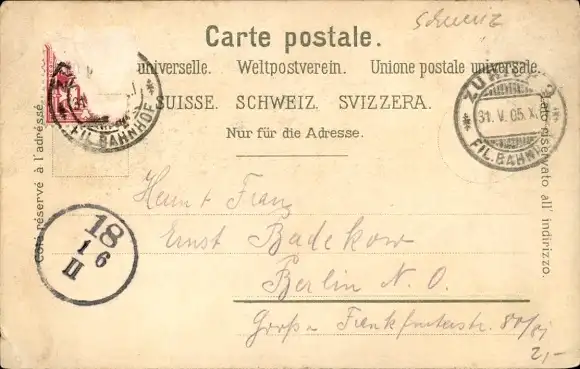 Schweiz
Carte postale.
universelle. Weltpostverein. Unione postale universale.
SUISSE. SCHWEIZ. SVIZZERA.
Nur für die Adresse.
Côté réservé à l'adresse.
Lato riservato all' indirizzo.
FIL. BAHNHOF
ZÜRICH
31. V. 05. X.
FIL. BAHNHOF
18
1 6
II
Franz
Ernst Badekow
Berlin N. O.
Große Frankfurterstr. 80/81
2,-